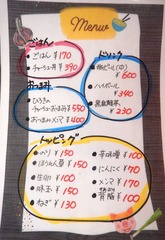 Menu
ごはん
・ごはん ¥170
・チャーシュー丼 ¥390
おつまみ
・チャーシュー ¥550
・おつまみメンマ ¥400
ドリンク
・瓶ビール(中) ¥600
・ハイボール ¥340
・黒烏龍茶 ¥230
トッピング
・のり ¥150
・ほうれん草 ¥150
・生卵 ¥100
・味玉 ¥150
・ねぎ ¥130
・辛味噌 ¥100
・にんにく ¥70
・メンマ ¥170
・特製背脂 ¥100